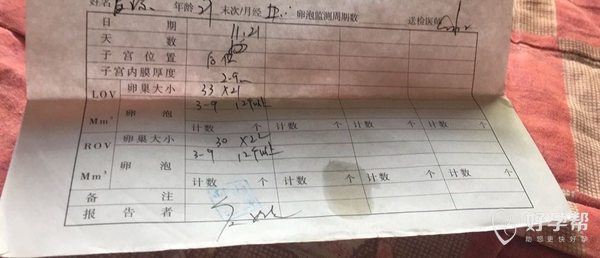 姓名 年龄 21 末次/月经 卵泡监测周期数 送检医师
日期 11.21
天数
子宫位置 后位
子宫内膜厚度 2-9
LOV 卵巢大小 33×21
Mm³ 卵泡 3-9 12个以上
计数 个 计数 个 计数 个 计数 个
ROV 卵巢大小 30×22
Mm³ 卵泡 3-9 12个以上
计数 个 计数 个 计数 个 计数 个
备注
报告者
好孕帮
助您更快好孕